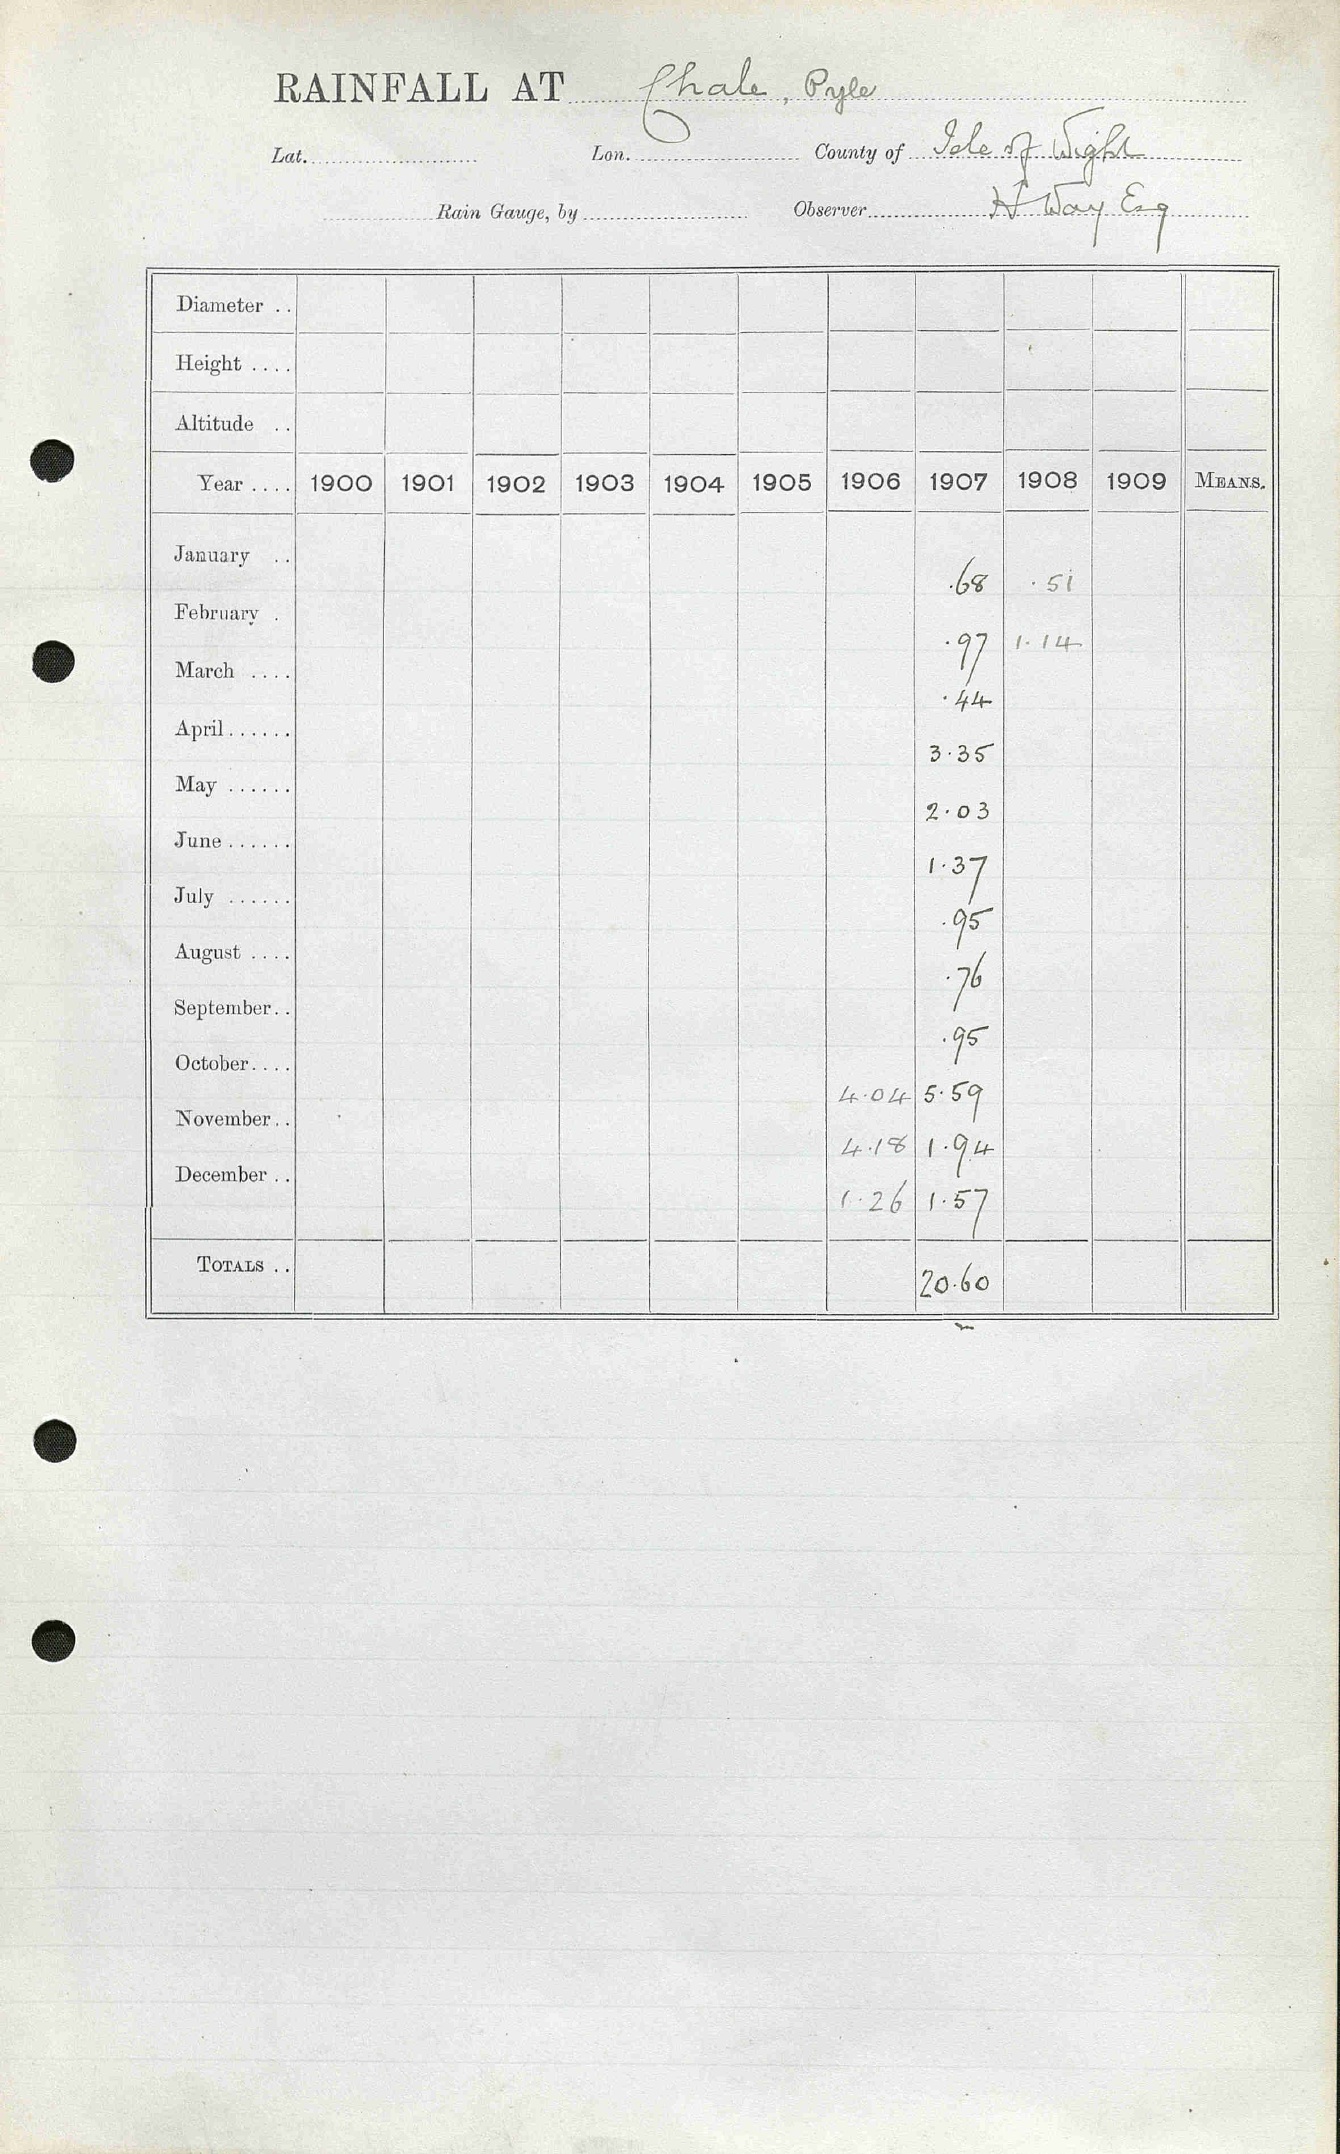 RAINFALL AT Chale, Pyle
Lat. Lon. County of Isle of Wight
Rain Gauge, by Observer H Way Esq
Diameter ..
Height ....
Altitude ..
Year .... 1900 1901 1902 1903 1904 1905 1906 1907 1908 1909 MEANS.
January ..
.68 .51
February .
.97 1.14
March ....
.44
April......
3.35
May ......
2.03
June ......
1.37
July ......
.95
August ....
.76
September..
.95
October....
4.04 5.59
November..
4.18 1.94
December ..
1.26 1.57
TOTALS ..
20.60